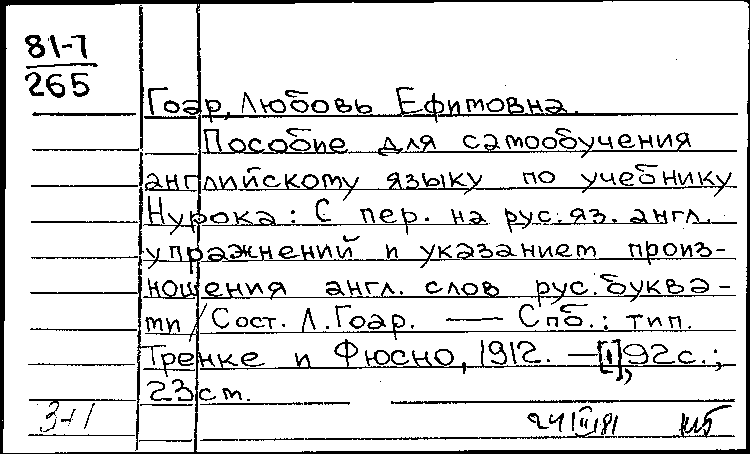 81-7
265
Гоар, Любовь Ефимовна.
Пособие для самообучения
английскому языку по учебнику
Нурока: С пер. на рус. яз. англ.
упражнений и указанием произ-
ношения англ. слов рус. буква-
ми / Сост. Л. Гоар. — Спб.: тип.
Тренке и Фюсно, 1912. — [1], 92 с.;
23 см.
3-1
24/III/81